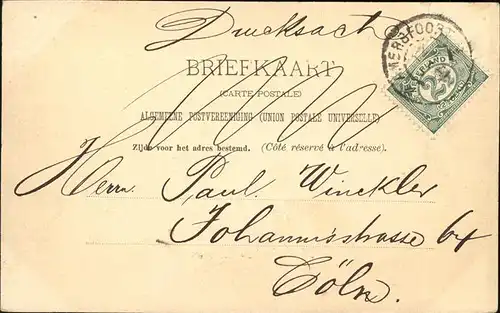 Drucksache
AMERSFOORT
NEDERLAND
2½
BRIEFKAART
(CARTE POSTALE)
ALGEMEENE POSTVEREENIGING (UNION POSTALE UNIVERSELLE)
Zijde voor het adres bestemd. (Côté réservé à l'adresse).
Herrn Paul Winckler
Johannisstrasse 64
Cöln.